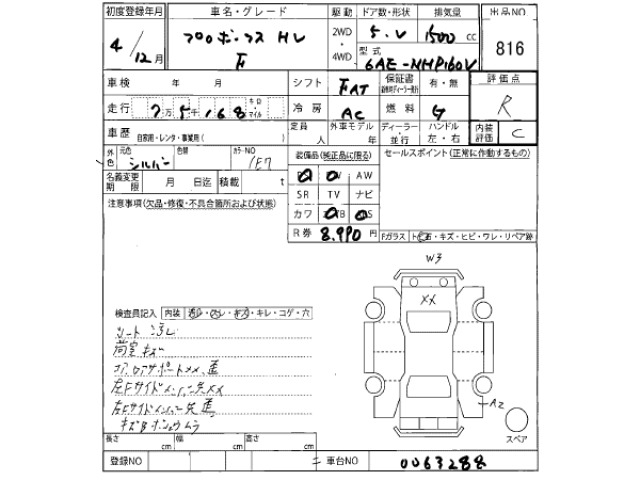 初度登録年月 車名・グレード 駆動 ドア数・形状 排気量 出品NO
4/12月 プロボックス HV F 2WD・4WD 5.V 1500cc 816
型式 6AE-NHP160V
車検 年 月 シフト FAT 保証書 有・無 評価点
走行 7万5千168 キロ・マイル 冷房 AC 燃料 G R
車歴 自家用・レンタ・事業用( ) 定員 人 外車モデル 年 ディーラー・並行 ハンドル 左・右 内装評価 C
外色 元色 シルバー 色替 カラーNO 1E7 装備品(純正品に限る) セールスポイント(正常に作動するもの)
AW
名義変更期限 月 日迄 積載 t SR TV ナビ
注意事項(欠品・修復・不具合箇所および状態) カワ
R券 8.990円 Fガラス ト石・キズ・ヒビ・ワレ・リペア跡
W3
XX
検査員記入 内装 キレ・コゲ・穴
シート ヨゴレ
荷室 キズ
コアロアサポートメメ、直
左F サイドメンバー先メメ
右Fサイドメンバー先 直
A2
スペア
長さ cm 幅 cm 高さ cm
登録NO 車台NO 0063288